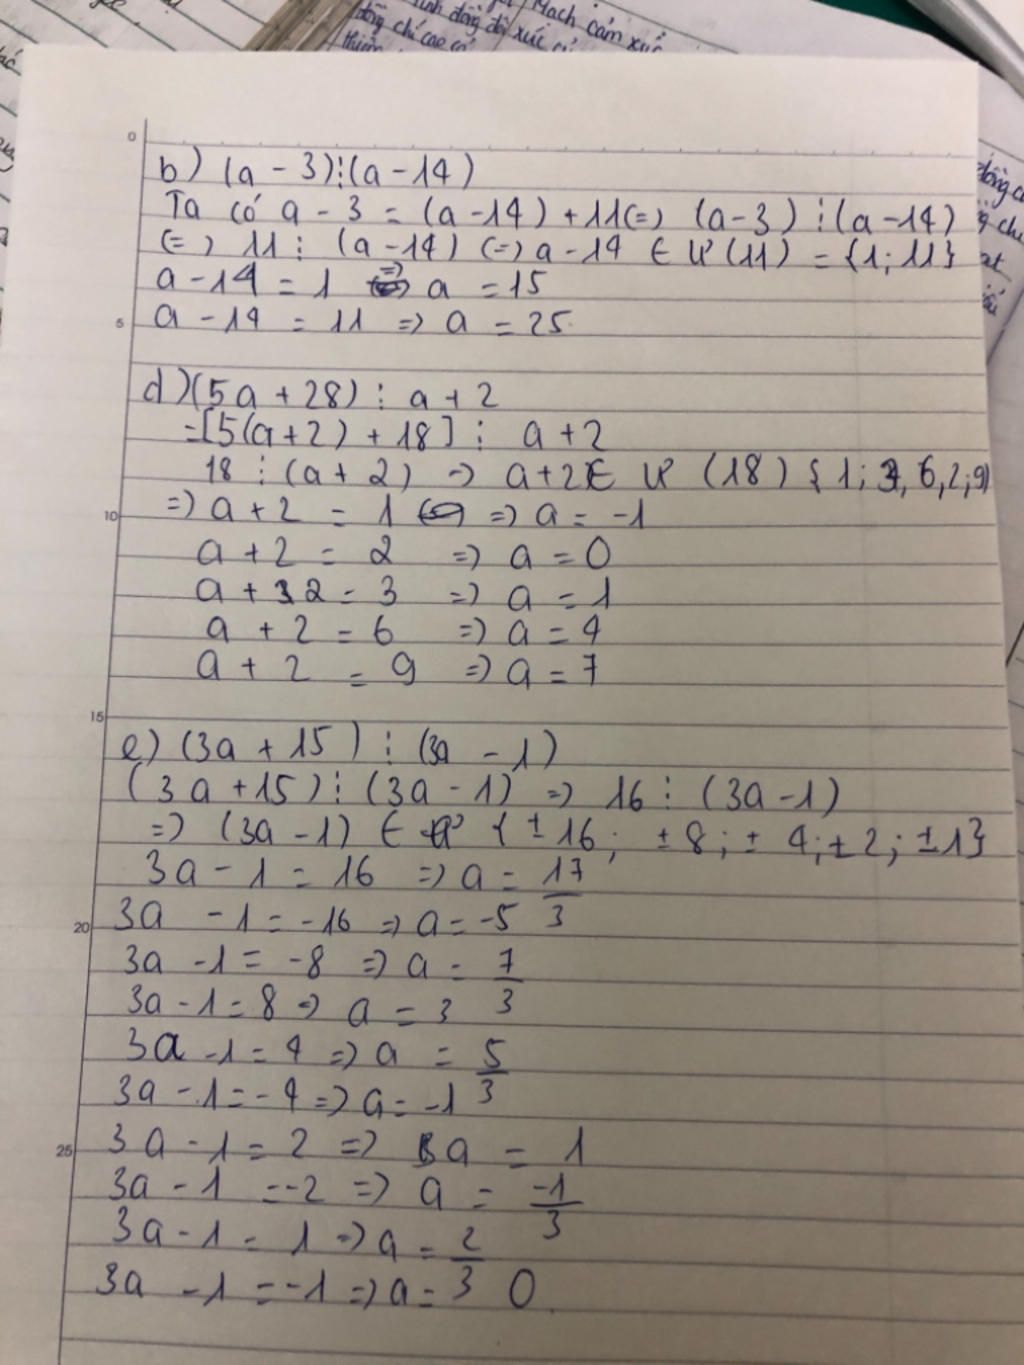 Mạch cảm xúc
b) (a - 3)⋮(a - 14)
Ta có a - 3 = (a - 14) + 11 (=) (a - 3) ⋮ (a - 14)
(=) 11 ⋮ (a - 14) (=) a - 14 ∈ Ư (11) = {1; 11}
a - 14 = 1 => a = 15
a - 14 = 11 => a = 25
d) (5a + 28) ⋮ a + 2
=[5(a+2) + 18] ⋮ a + 2
18 ⋮ (a + 2) => a + 2 ∈ Ư (18) { 1; 3, 6, 2; 9}
=> a + 2 = 1 => a = -1
a + 2 = 2 => a = 0
a + 2 = 3 => a = 1
a + 2 = 6 => a = 4
a + 2 = 9 => a = 7
e) (3a + 15) ⋮ (3a - 1)
(3a + 15) ⋮ (3a - 1) => 16 ⋮ (3a - 1)
=> (3a - 1) ∈ { ± 16; ± 8; ± 4; ± 2; ± 1}
3a - 1 = 16 => a = 17/3
3a - 1 = -16 => a = -5
3a - 1 = -8 => a = 7/3
3a - 1 = 8 => a = 3
3a - 1 = 4 => a = 5/3
3a - 1 = -4 => a = -1
3a - 1 = 2 => a = 1
3a - 1 = -2 => a = -1/3
3a - 1 = 1 => a = 2/3
3a - 1 = -1 => a = 0